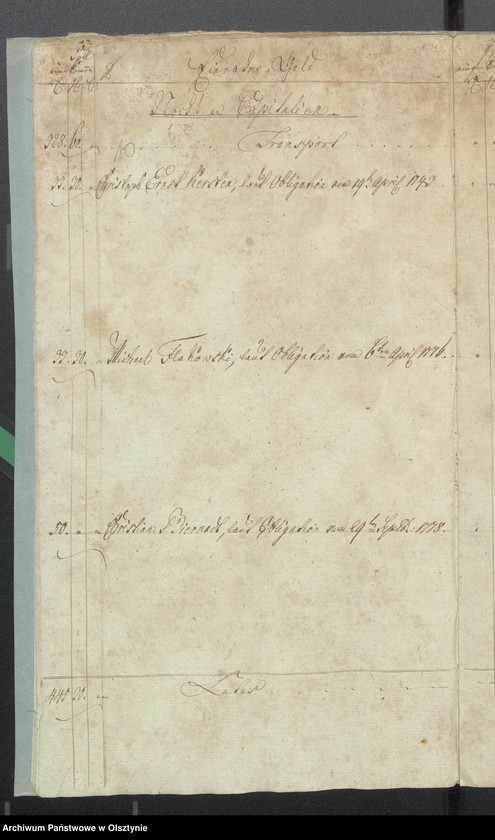 Einnahme Geld
Noch an Capitalien
328. 60. Transport
33. 30. Christoph Ernst Kersten, laut Obligation vom 19t April 1743.
33. 30. Michael Flakowski, laut Obligation vom 6ten April 1776.
50. Christian Biernath, laut Obligation vom 29t 1778.
445. 30. Latus
Archiwum Państwowe w Olsztynie